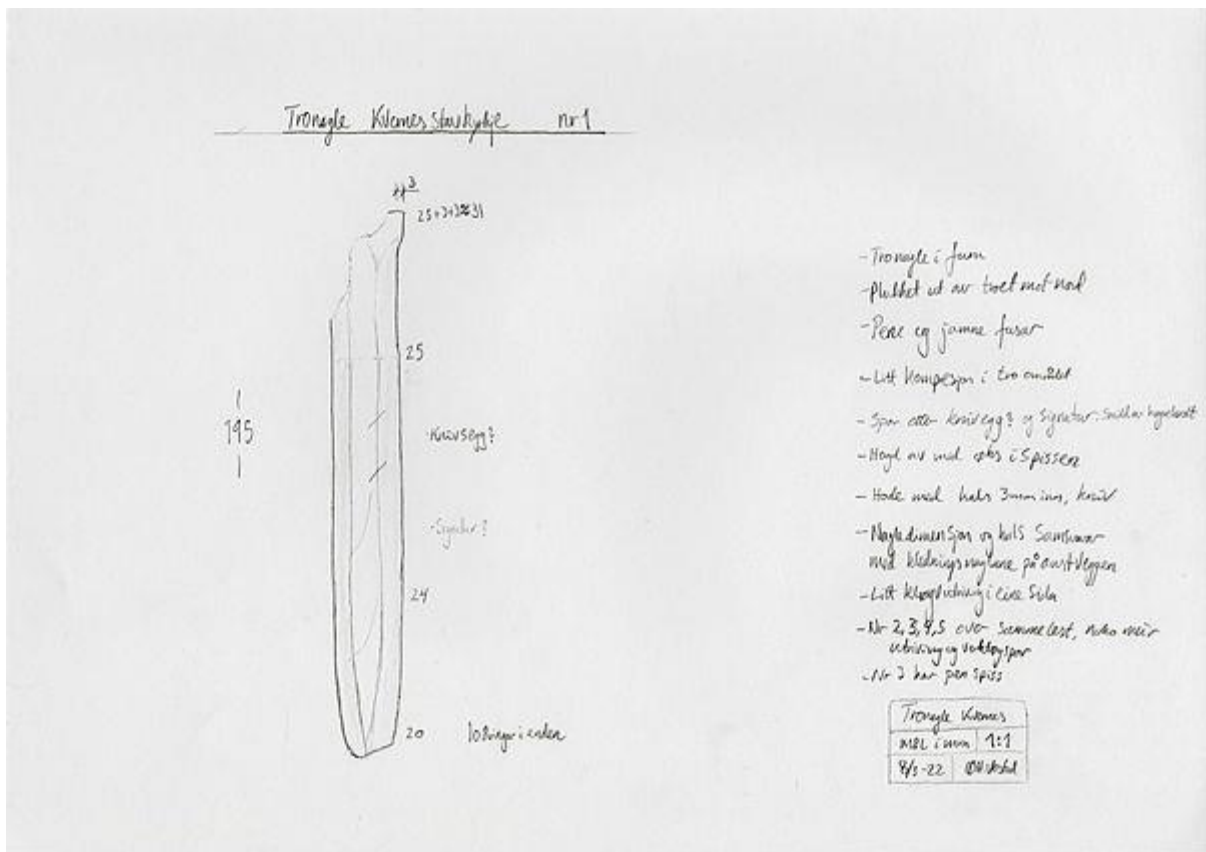 Tronagle Kvernes stavkyrkje nr 1
3
25+3+3=31
25
195
-Knivsegg?
-Signatur?
24
20
10 Ringer i enden
- Tronagle i furu
- Plukket ut av troet mot nord
- Pene og jamne fasar
- Litt kompresjon i tro området
- Spor etter knivegg? og Signatur.
- Hogd av med øks i Spissen
- Hode med hals 3mm inn, kniv
- Nagledimensjon og hals Samsvarar
med kledningsnaglene på austveggen
- Litt i eine Sida
- Nr 2,3,4,5 over Samme lest, noko meir
utriving og verktøyspor
- Nr 3 har pen spiss
Tronagle Kvernes
Mål i mm 1:1
8/3-22